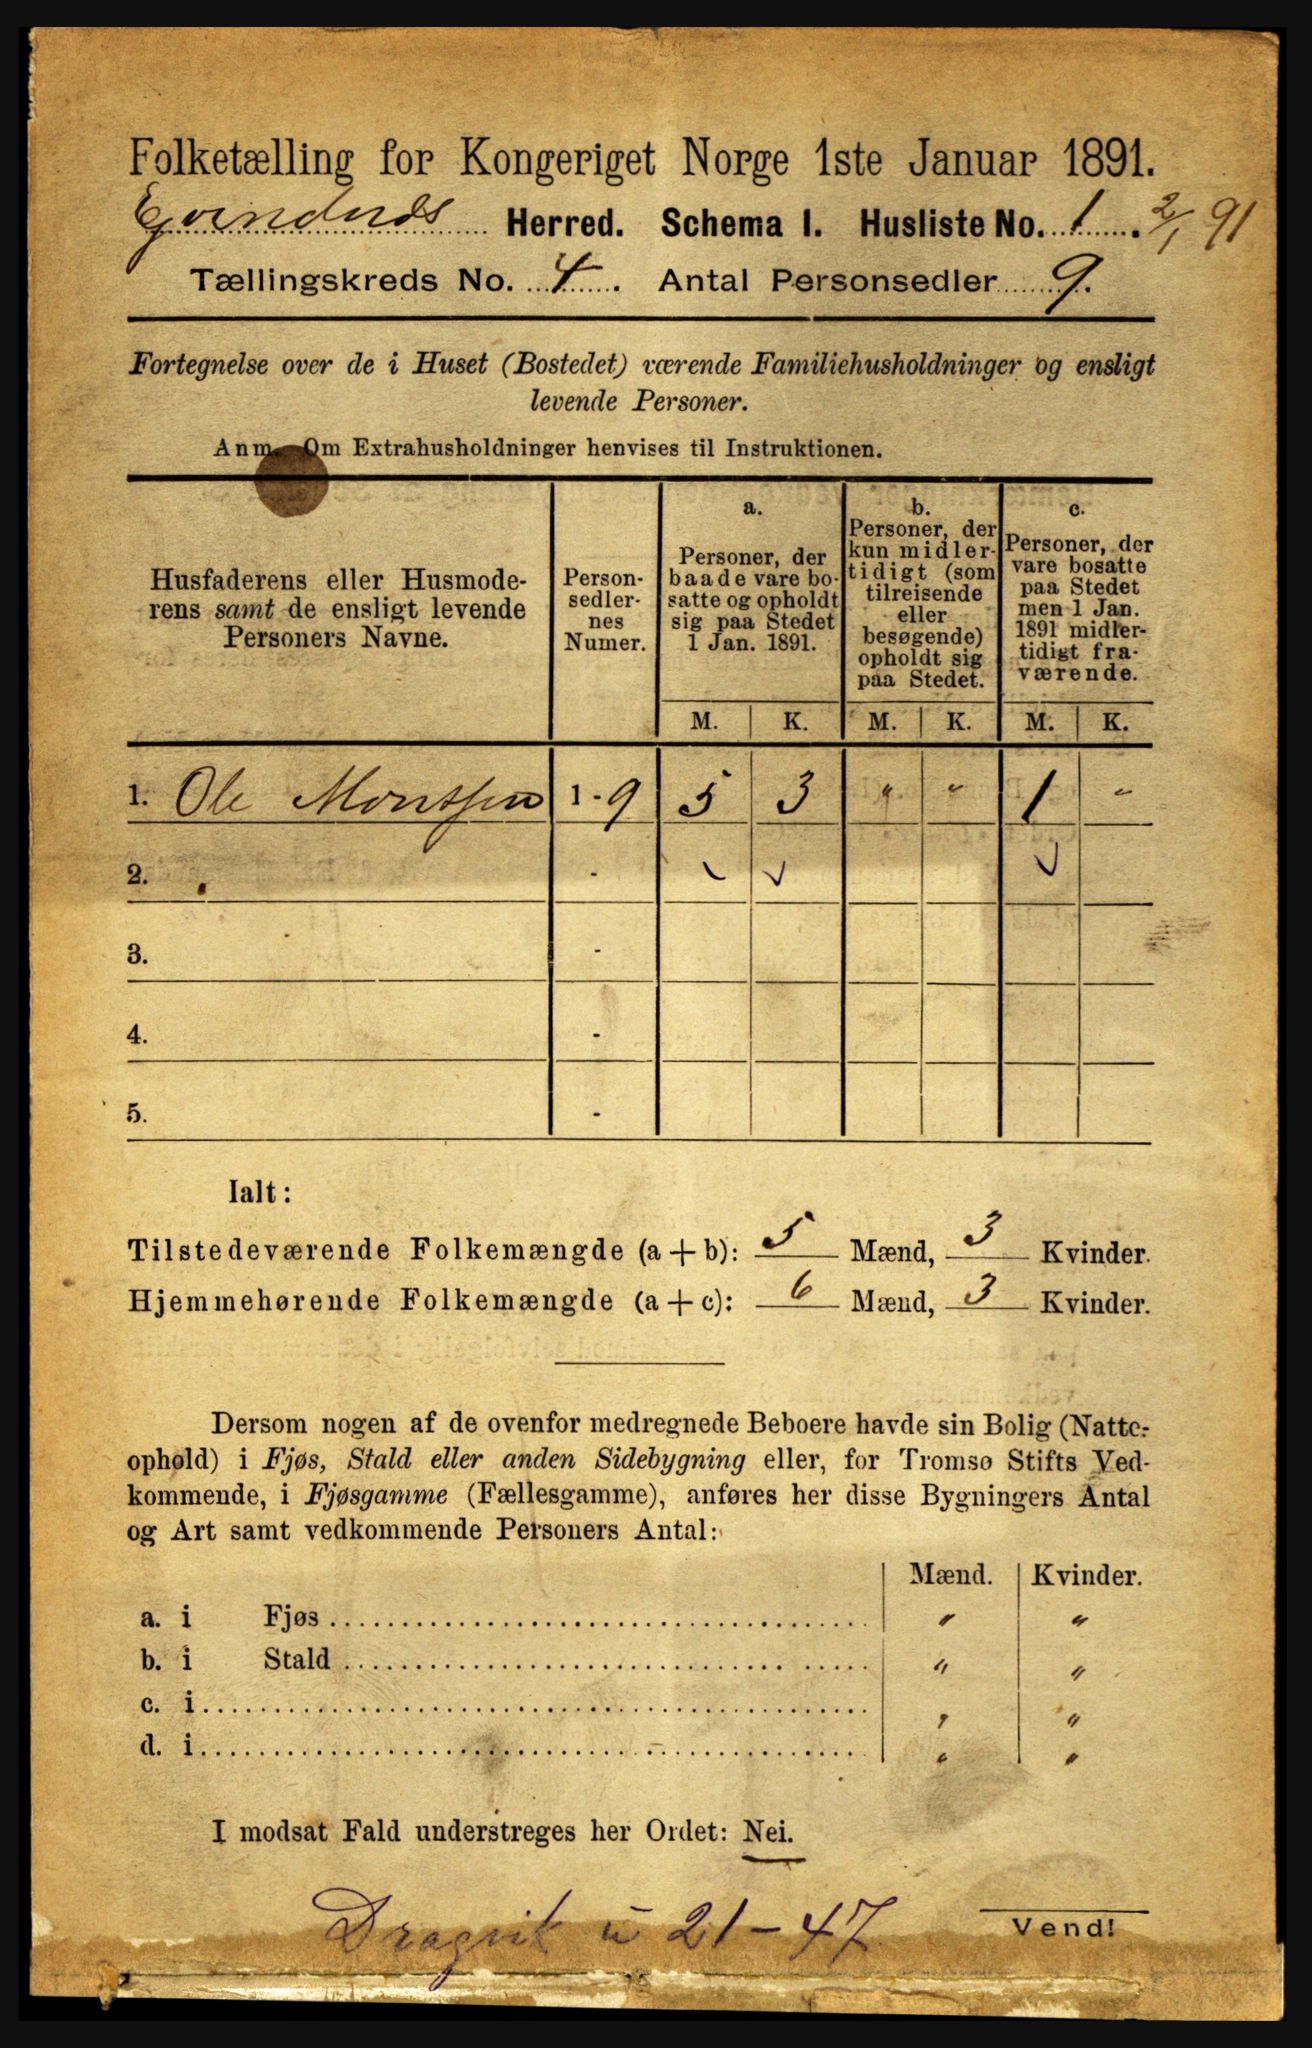 Folketælling for Kongeriget Norge 1ste Januar 1891.
Herred. Schema I. Husliste No. 1. 2/1 91
Tællingskreds No. 4. Antal Personsedler 9.
Fortegnelse over de i Huset (Bostedet) værende Familiehusholdninger og ensligt
levende Personer.
Anm. Om Extrahusholdninger henvises til Instruktionen.
Husfaderens eller Husmode-
rens samt de ensligt levende
Personers Navne.
Person-
sedler-
nes
Numer.
a.
Personer, der
baade vare bo-
satte og opholdt
sig paa Stedet
1 Jan. 1891.
b.
Personer, der
kun midler-
tidigt (som
tilreisende
eller
besøgende)
opholdt sig
paa Stedet.
c.
Personer, der
vare bosatte
paa Stedet
men 1 Jan.
1891 midler-
tidigt fra-
værende.
M. K. M. K. M. K.
1. Ole Monssen 1-9 5 3 " " 1 "
2. -
3. -
4. -
5. -
Ialt:
Tilstedeværende Folkemængde (a + b): 5 Mænd, 3 Kvinder.
Hjemmehørende Folkemængde (a + c): 6 Mænd, 3 Kvinder.
Dersom nogen af de ovenfor medregnede Beboere havde sin Bolig (Natte-
ophold) i Fjøs, Stald eller anden Sidebygning eller, for Tromsø Stifts Ved-
kommende, i Fjøsgamme (Fællesgamme), anføres her disse Bygningers Antal
og Art samt vedkommende Personers Antal:
Mænd. Kvinder.
a. i Fjøs " "
b. i Stald " "
c. i " "
d. i " "
I modsat Fald understreges her Ordet: Nei.
Dragvik u 21-47
Vend!